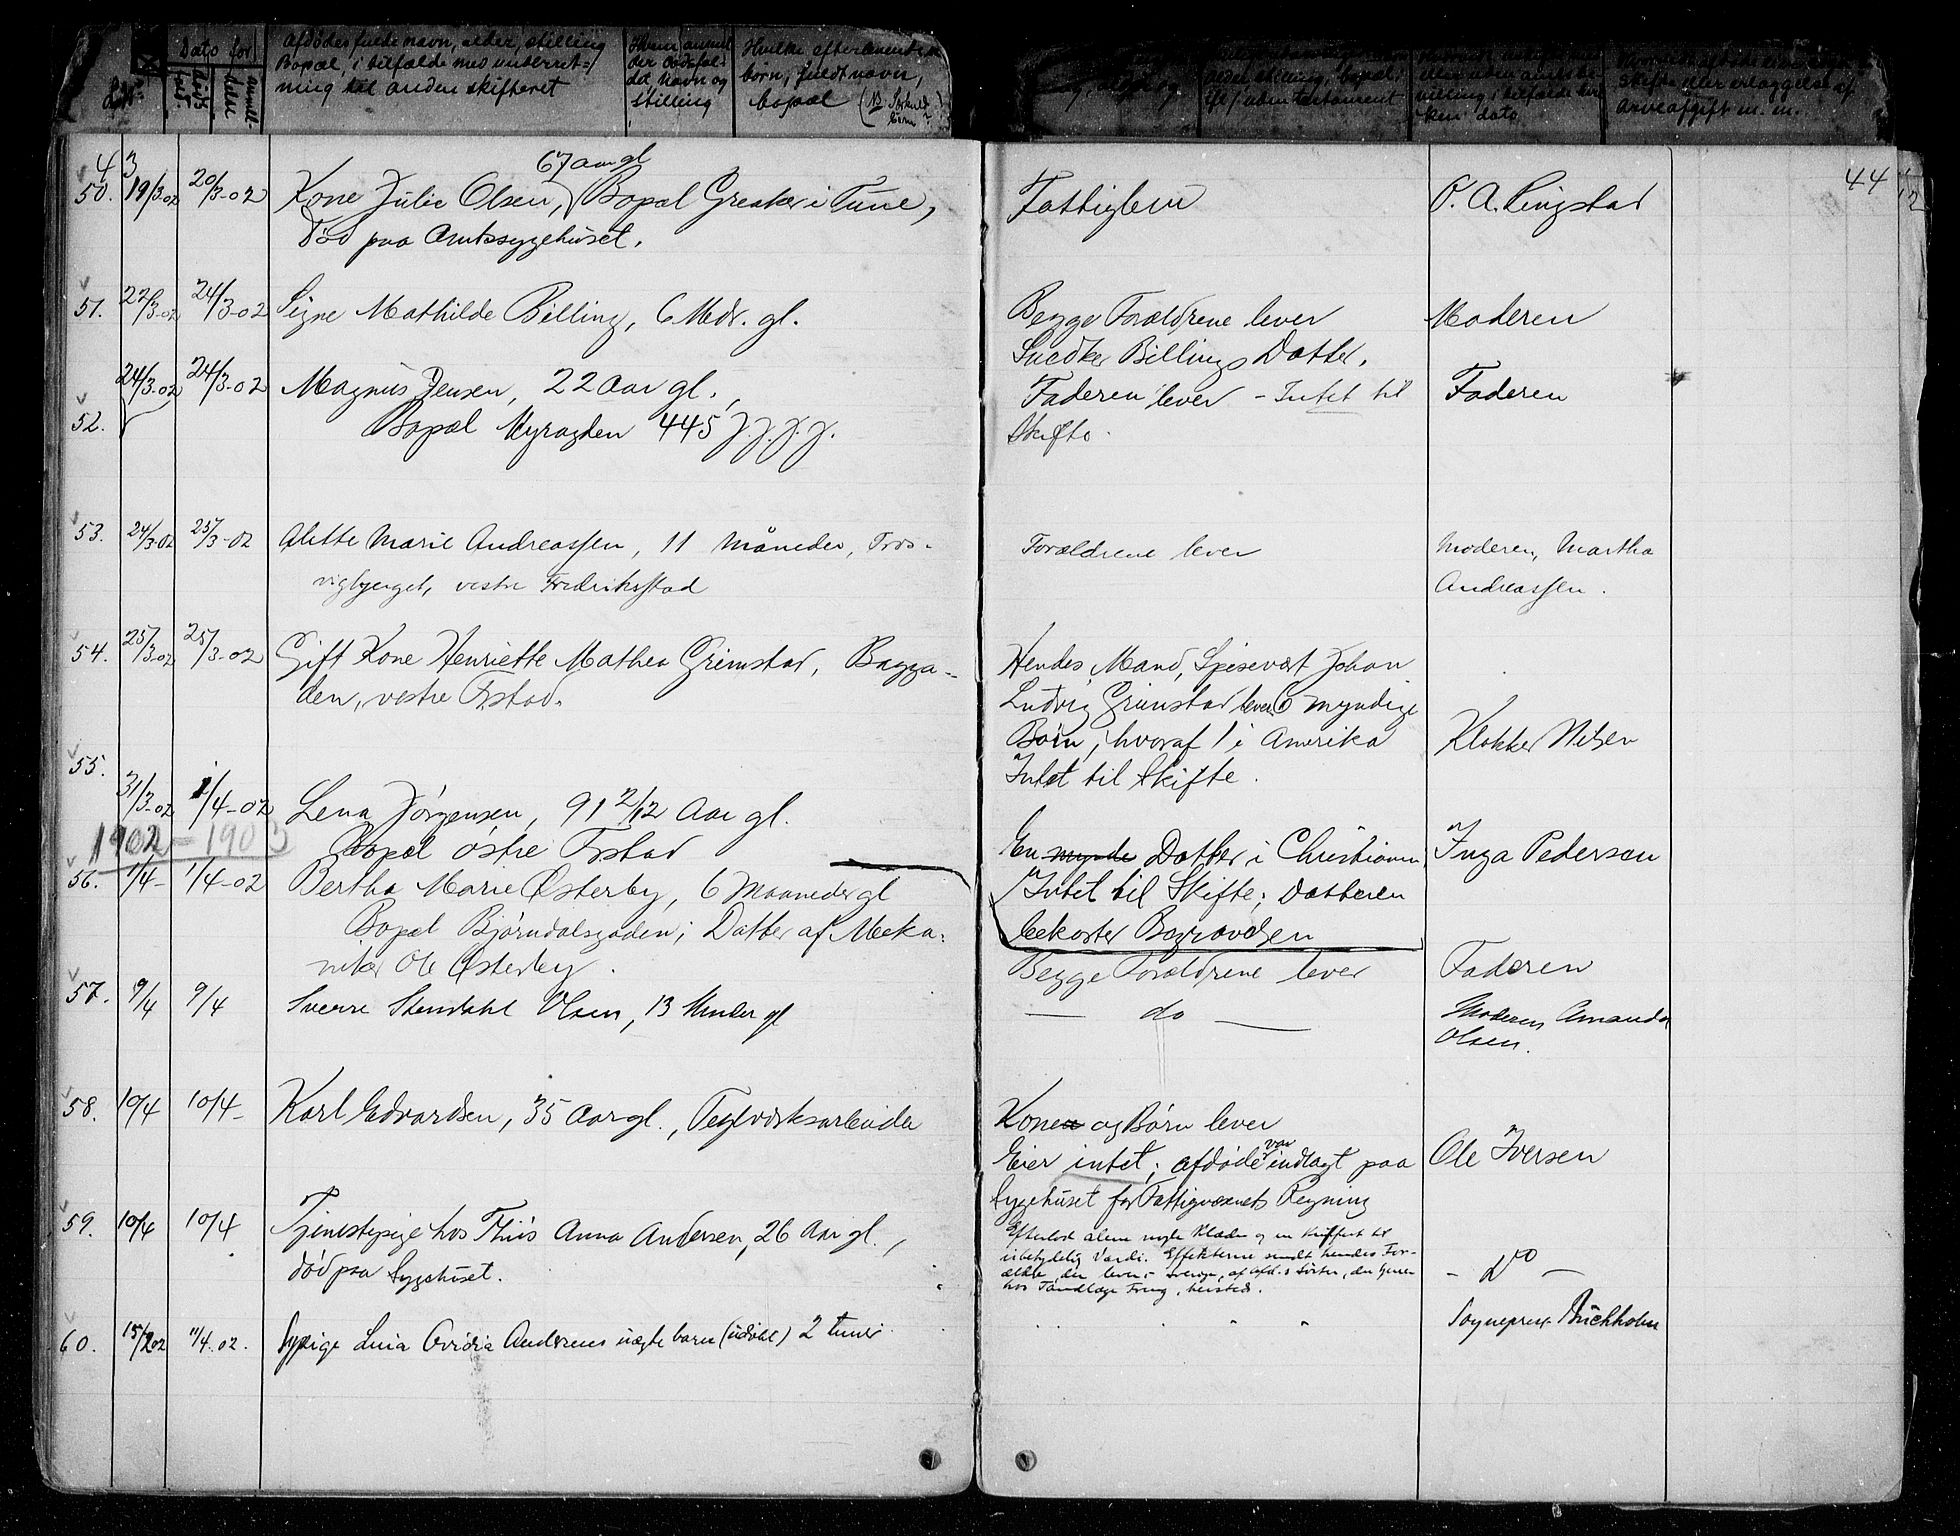 Dato for
Afdødes fulde navn, alder, stilling
Bopæl, i tilfælde med underret-
ning til anden skifteret
Hvem anmel
der dødsfal-
det, Navn og
stilling
Hvilke efterlevende
børn, fuldt navn,
bopæl
død.
anmel-
delse
skifte eller erlæggelse af
arveafgift m. m.
ken dato
4 3
44
67 Aar gl
50. 19/3-02 20/3-02 Kone Julie Olsen, Bopæl Greaker i Tune, Fattiglem O. A. Ringstad
Død paa Amtssygehuset.
51. 22/3-02 24/3-02 Signe Mathilde Billing, 6 Mdr. gl. Begge Forældrene lever Moderen
Snedker Billings Datter.
24/3-02 24/3-02 Magnus Jensen, 22 Aar gl. Faderen lever - Intet til Faderen
52. Bopæl Nyragden 445 J.J.J.J. Skifte.
53. 24/3-02 25/3-02 Alette Marie Andreassen, 11 Måneder, Tros- Forældrene lever Moderen, Martha
vigbjerget, vestre Fredriksstad Andreassen.
54. 25/3-02 25/3-02 Gift Kone Henriette Mathea Grimstad, Bagga- Hendes Mand, Spisevært Johan
den, vestre Frstad. Ludvig Grimstad lever, 6 myndige
Børn, hvoraf 1 i Amerika Klokker Nilsen
55. Intet til Skifte.
31/3-02 1/4-02 Lena Jörgensen, 91 2/12 Aar gl.
1902-1903 Bopæl östre Frstad En mynde Datter i Christiania Inga Pedersen
56. 1/4- 1/4-02 Bertha Marie Østerby, 6 Maaneder gl Intet til Skifte; Datteren
Bopæl Bjørndalsgaden; Datter af Meka- bekoster Begravelsen
niker Ole Østerby. Begge Forældrene lever Faderen
57. 9/4 9/4 Sverre Stendahl Olsen, 13 Maaneder gl — do — Moderen Amanda
Olsen.
58. 10/4 10/4- Karl Edvardsen, 35 Aar gl., Teglværksarbeider Kone og Børn lever
Eier intet; afdøde var indlagt paa Ole Iversen
Sygehuset for Fattigvæsnets Regning
59. 10/4 10/4 Tjenestepige hos Thiis Anna Andersen, 26 Aar gl., Efterlod alene nogle Klæder og en Kuffert til
død paa Sygehuset. ubetydelig Værdi. Effekterne sendt hendes For-
ældre, der lever i Sverige, af afd.s Søster, der tjener - do -
hos Tandlæge Fring, hersted.
60. 15/2 02 11/4.02. Spige Lina Ovidia Andersens uægte barn (udøbt) 2 timer Sogneprest Buchholm